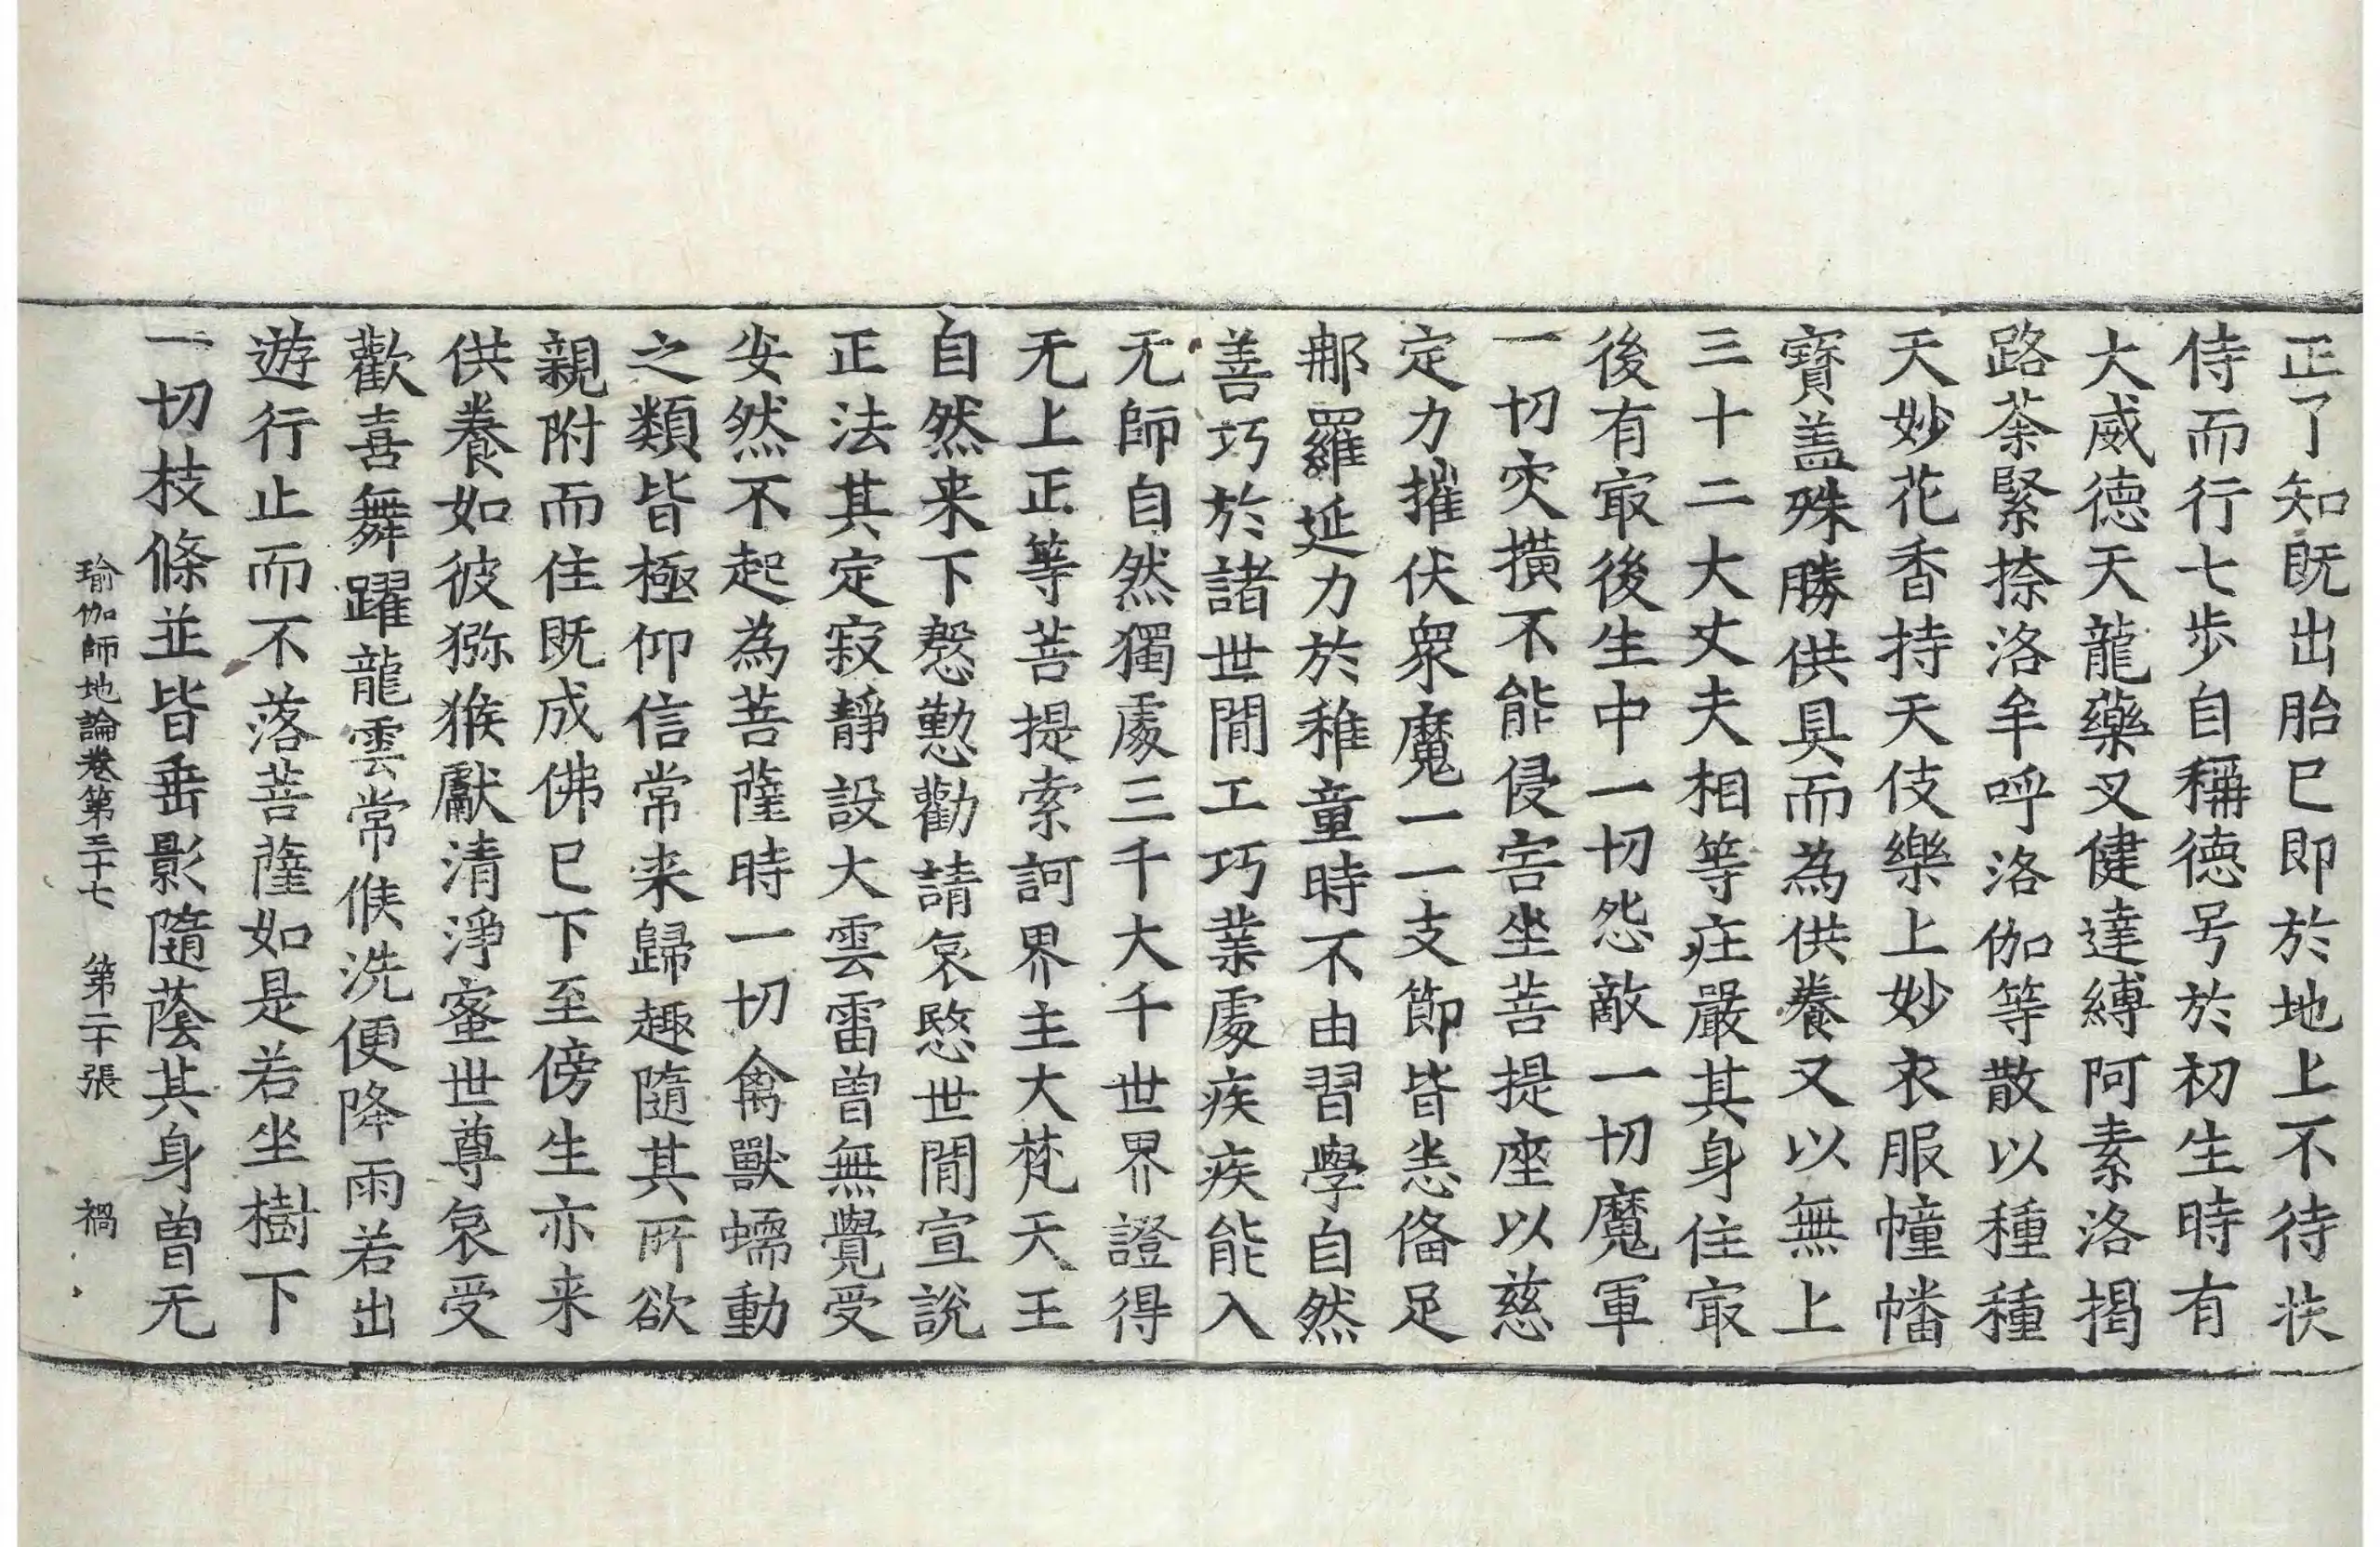 正了知既出胎已即於地上不待扶
侍而行七步自稱德号於初生時有
大威德天龍藥叉健達縛阿素洛揭
路荼緊捺洛牟呼洛伽等散以種種
天妙花香持天伎樂上妙衣服幢幡
寶盖殊勝供具而為供養又以無上
三十二大丈夫相等庄嚴其身住㝡
後有㝡後生中一切怨敵一切魔軍
一切灾撗不能侵害坐菩提座以慈
定力摧伏衆魔一一支節皆悉俻足
那羅延力於稚童時不由習學自然
善巧於諸世間工巧業處疾疾能入
无師自然獨處三千大千世界證得
无上正等菩提索訶界主大梵天王
自然来下慇懃勸請哀愍世間宣說
正法其定寂靜設大雲雷曾無覺受
安然不起為菩薩時一切禽獸蠕動
之類皆極仰信常来歸趣隨其所欲
親附而住既成佛已下至傍生亦来
供養如彼猕猴獻清淨蜜世尊哀受
歡喜舞躍龍雲常候洗便降雨若出
遊行止而不落菩薩如是若坐樹下
一切枝條並皆垂影隨蔭其身曾无
瑜伽師地論卷第三十七 第二十張 禍